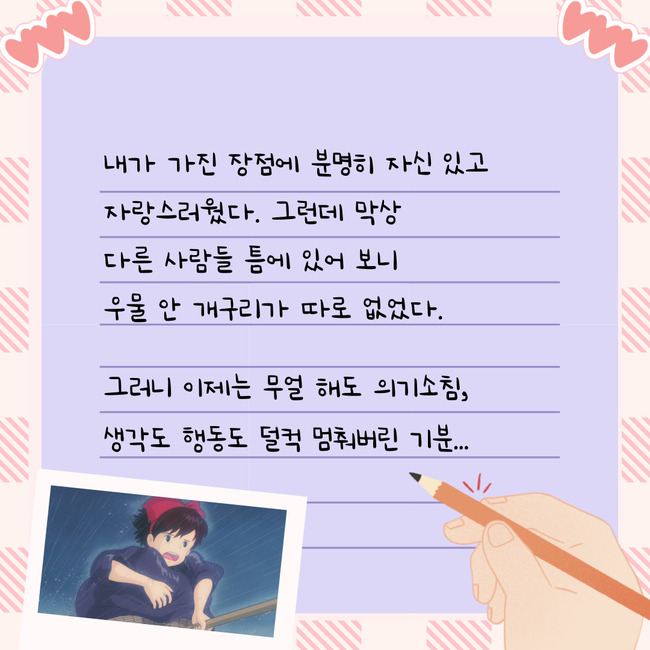 내가 가진 장점에 분명히 자신 있고
자랑스러웠다. 그런데 막상
다른 사람들 틈에 있어 보니
우물 안 개구리가 따로 없었다.
그러니 이제는 무얼 해도 의기소침,
생각도 행동도 덜컥 멈춰버린 기분...